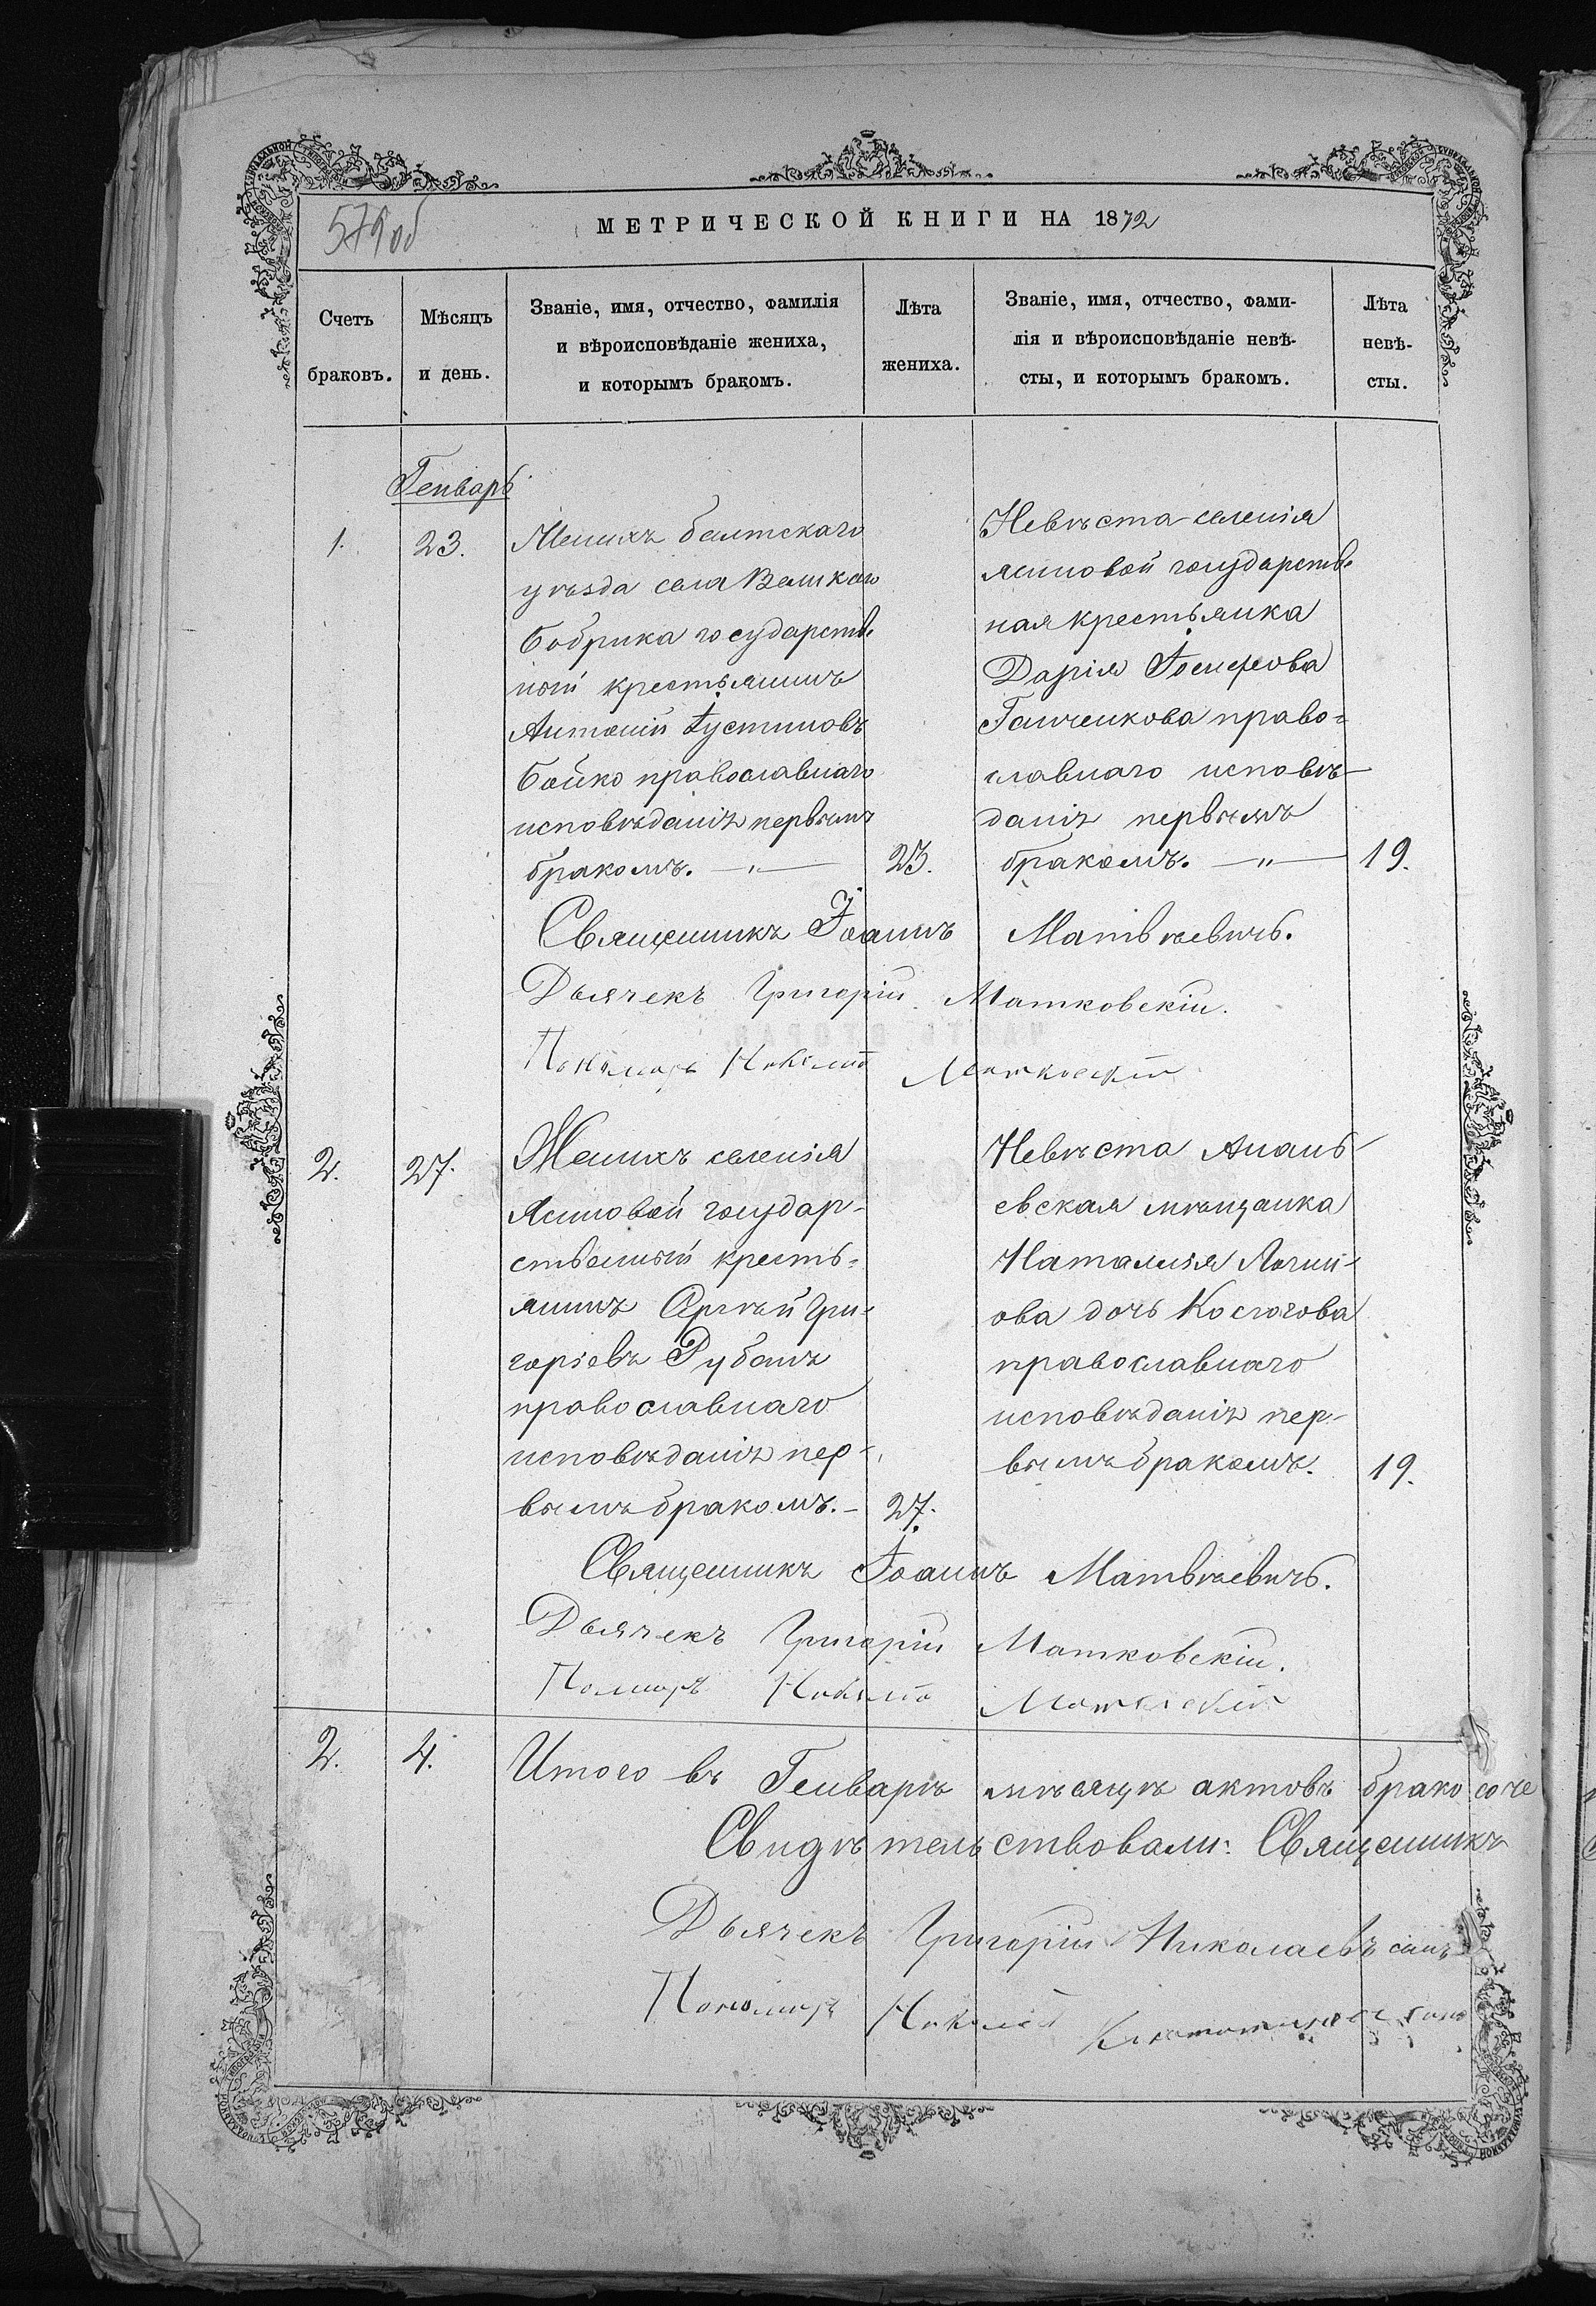 579об
МЕТРИЧЕСКОЙ КНИГИ НА 1872
Счетъ
браковъ.
Мѣсяцъ
и день.
Званіе, имя, отчество, фамилія
и вѣроисповѣданіе жениха,
и которымъ бракомъ.
Лѣта
жениха.
Званіе, имя, отчество, фами-
лія и вѣроисповѣданіе невѣ-
сты, и которымъ бракомъ.
Лѣта
невѣ-
сты.
Генварь
1.
23.
Женихъ балтскаго
уѣзда села Великаго
Бобрика государств.
ный крестьянинъ
Антоній Іустиновъ
Бойко православнаго
исповѣданія первымъ
бракомъ. — „ —
23.
Невѣста селенія
Ясиновой государств.
ная крестьянка
Дарія Іосифова
Ганченкова право=
славнаго исповѣ-
данія первымъ
бракомъ. — „ —
19.
Священникъ Іоаннъ Матвѣевичъ.
Дьячекъ Григорій Матковскій.
Пономарь Николай Матковскій
2.
27.
Женихъ селенія
Ясиновой государ-
ственный кресть=
янинъ Сергѣй Гри-
горіевъ Рубанъ
православнаго
исповѣданія пер-
вымъ бракомъ. -
27.
Невѣста Анань-
евская мѣщанка
Наталія
ова дочь Косюгова
православнаго
исповѣданія пер-
вымъ бракомъ.
19.
Священникъ Іоаннъ Матвѣевичъ.
Дьячекъ Григорій Матковскій.
Помарь Николай Матковскій
2.
4.
Итого въ Генварѣ мѣсяцѣ актовъ брако соче
Свидѣтельствовали: Священникъ
Дьячекъ Григорій Николаевъ сынъ
Пономарь Николай